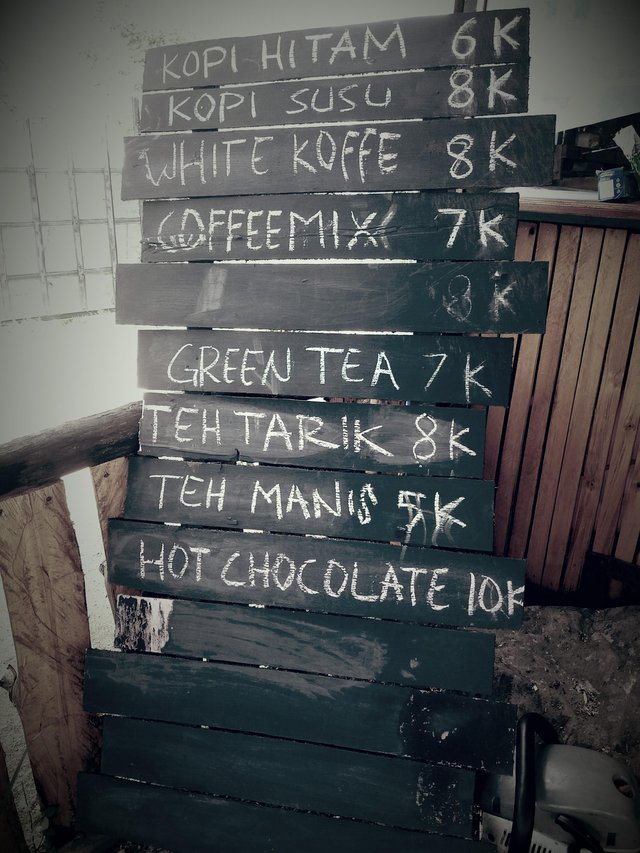 KOPI HITAM 6K
KOPI SUSU 8K
WHITE KOFFE 8K
COFFEEMIX 7K
8K
GREEN TEA 7K
TEH TARIK 8K
TEH MANIS 5K
HOT CHOCOLATE 10K